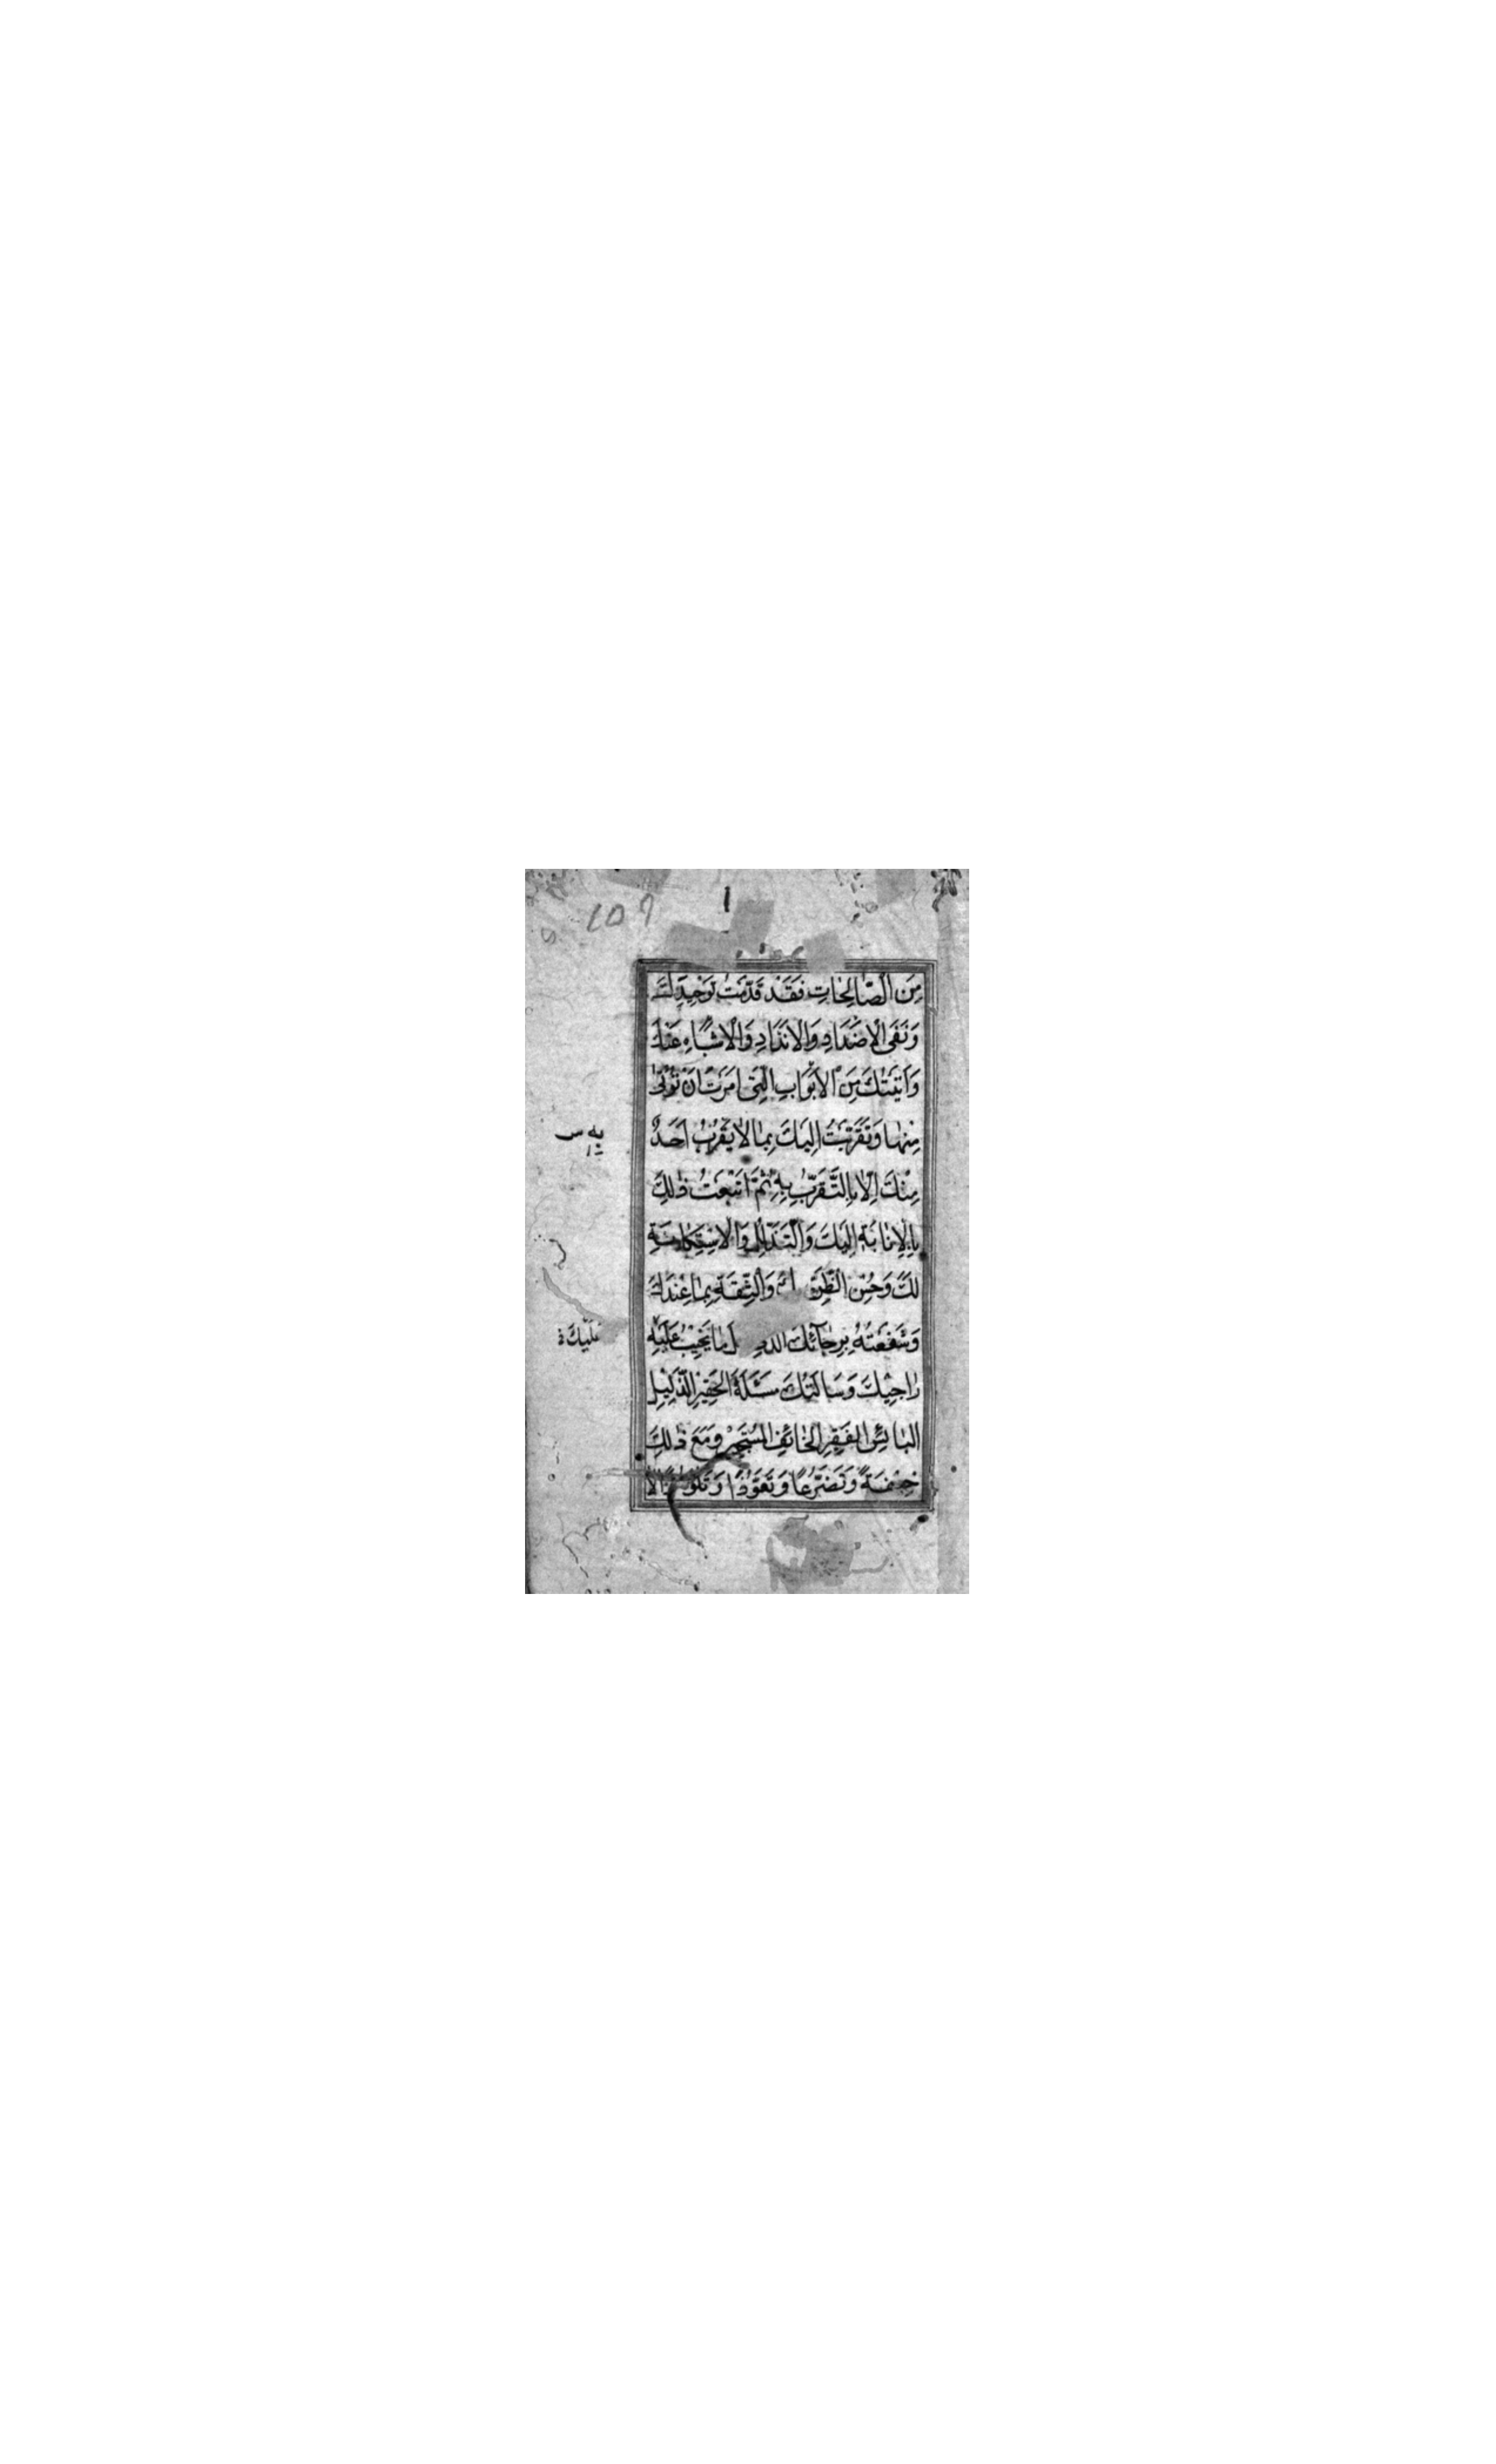 مِنَ الصّالِحاتِ فَقَدْ قَدَّمْتُ تَوْحِيدَكَ
وَنَفْىَ الْاَضْدادِ وَالْاَنْدادِ وَالْاَشْباهِ عَنْكَ
وَاَتَيْتُكَ مِنَ الْاَبْوابِ الَّتى اَمَرْتَ اَنْ تُؤْتى
مِنْها وَتَقَرَّبْتُ اِلَيْكَ بِما لا يَقْرُبُ اَحَدٌ
به س
مِنْكَ اِلّا بِالتَّقَرُّبِ بِهِ ثُمَّ اَتْبَعْتُ ذلِكَ
بِالْاِنابَةِ اِلَيْكَ وَالتَّذَلُّلِ وَالْاِسْتِكانَةِ
لَكَ وَحُسْنِ الظَّنِّ وَالثِّقَةِ بِما عِنْدَكَ
وَشَفَعْتُهُ بِرَجآئِكَ ما يَخِيبُ عَلَيْهِ
راجِيكَ وَسَاَلْتُكَ مَسْئَلَةَ الْحَقِيرِ الذَّلِيلِ
الْبائِسِ الْفَقِيرِ الْخائِفِ الْمُسْتَجِيرِ وَمَعَ ذلِكَ
خِيفَةً وَتَضَرُّعًا وَتَعَوُّذًا وَتَلَوُّذًا لا